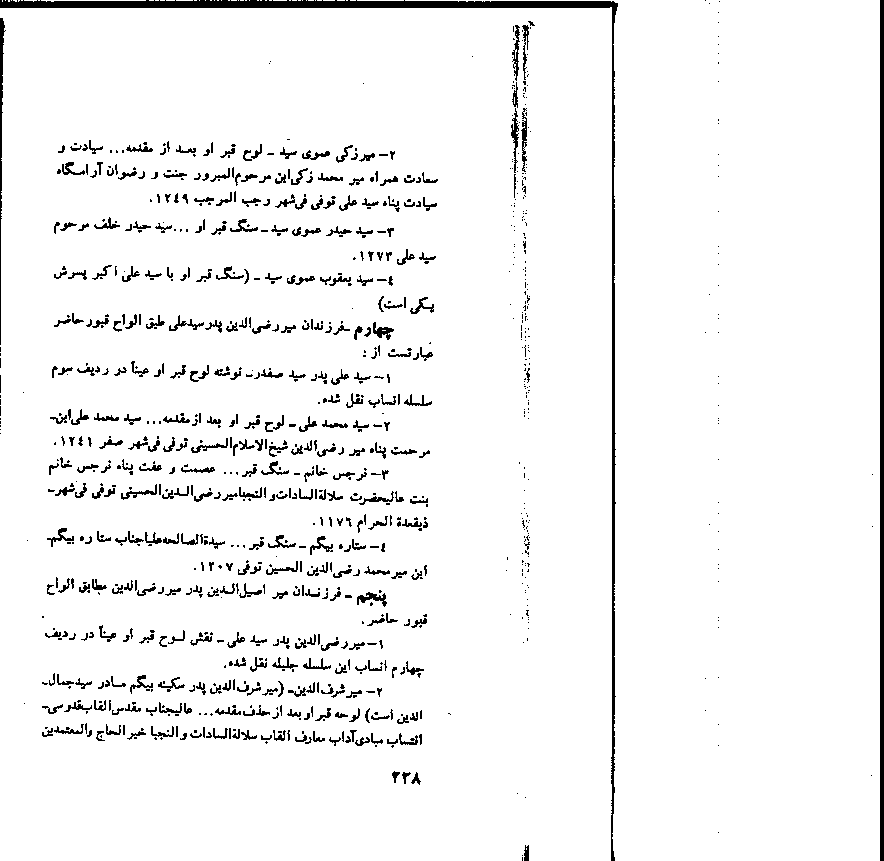 ۲- میرزکی عموی سید - لوح قبر او بعد از مقدمه... سیادت و
سعادت همراه میر محمد زکی‌ابن مرحوم‌المبرور جنت و رضوان آرامگاه
سیادت پناه سید علی توفی فی‌شهر رجب المرجب ۱۲٤۹.
۳- سید حیدر عموی سید - سنگ قبر او ...سید حیدر خلف مرحوم
سید علی ۱۲۷۳.
٤- سید یعقوب عموی سید - (سنگ قبر او با سید علی اکبر پسرش
یکی است)
چهارم -فرزندان میررضی‌الدین پدرسیدعلی طبق الواح قبور حاضر
عبارتست از :
۱- سید علی پدر سید صفدر- نوشته لوح قبر او عیناً در ردیف سوم
سلسله انساب نقل شده.
۲- سید محمد علی - لوح قبر او بعد ازمقدمه... سید محمد علی‌ابن-
مرحمت پناه میر رضی‌الدین شیخ‌الاسلام‌الحسینی توفی فی‌شهر صفر ۱۲٤۱.
۳- نرجس خانم - سنگ قبر... عصمت و عفت پناه نرجس خانم
بنت عالیحضرت سلالة‌السادات‌و النجبامیررضی‌الـدین‌الحسینی توفی فی‌شهر-
ذیقعدة الحرام ۱۱۷٦.
٤- ستاره بیگم - سنگ قبر... سیدة‌الصالحه‌علیاجناب ستاره بیگم-
ابن میرمحمد رضی‌الدین الحسین توفی ۱۲۰۷.
پنجم - فرزنـدان میر اصیل‌الـدین پدر میررضی‌الدین مطابق الواح
قبور حاضر.
۱-میررضی‌الدین پدر سید علی - نقش لـوح قبر او عیناً در ردیف
چهارم انساب این سلسله جلیله نقل شده.
۲- میرشرف‌الدین- (میرشرف‌الدین پدر سکینه بیگم مـادر سیدجمال-
الدین است) لوحه قبراوبعد از حذف‌مقدمه... عالیجناب مقدس‌القاب‌قدوسی-
انتساب مبادی‌آداب معارف القاب سلالة‌السادات والنجبا خیر الحاج والمعتمدین
۲۳۸